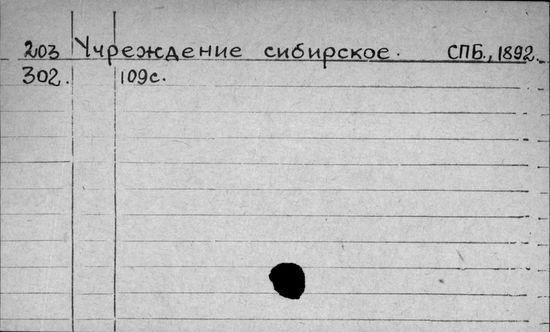 203 Учреждение сибирское. СПБ., 1892.
302. 109с.